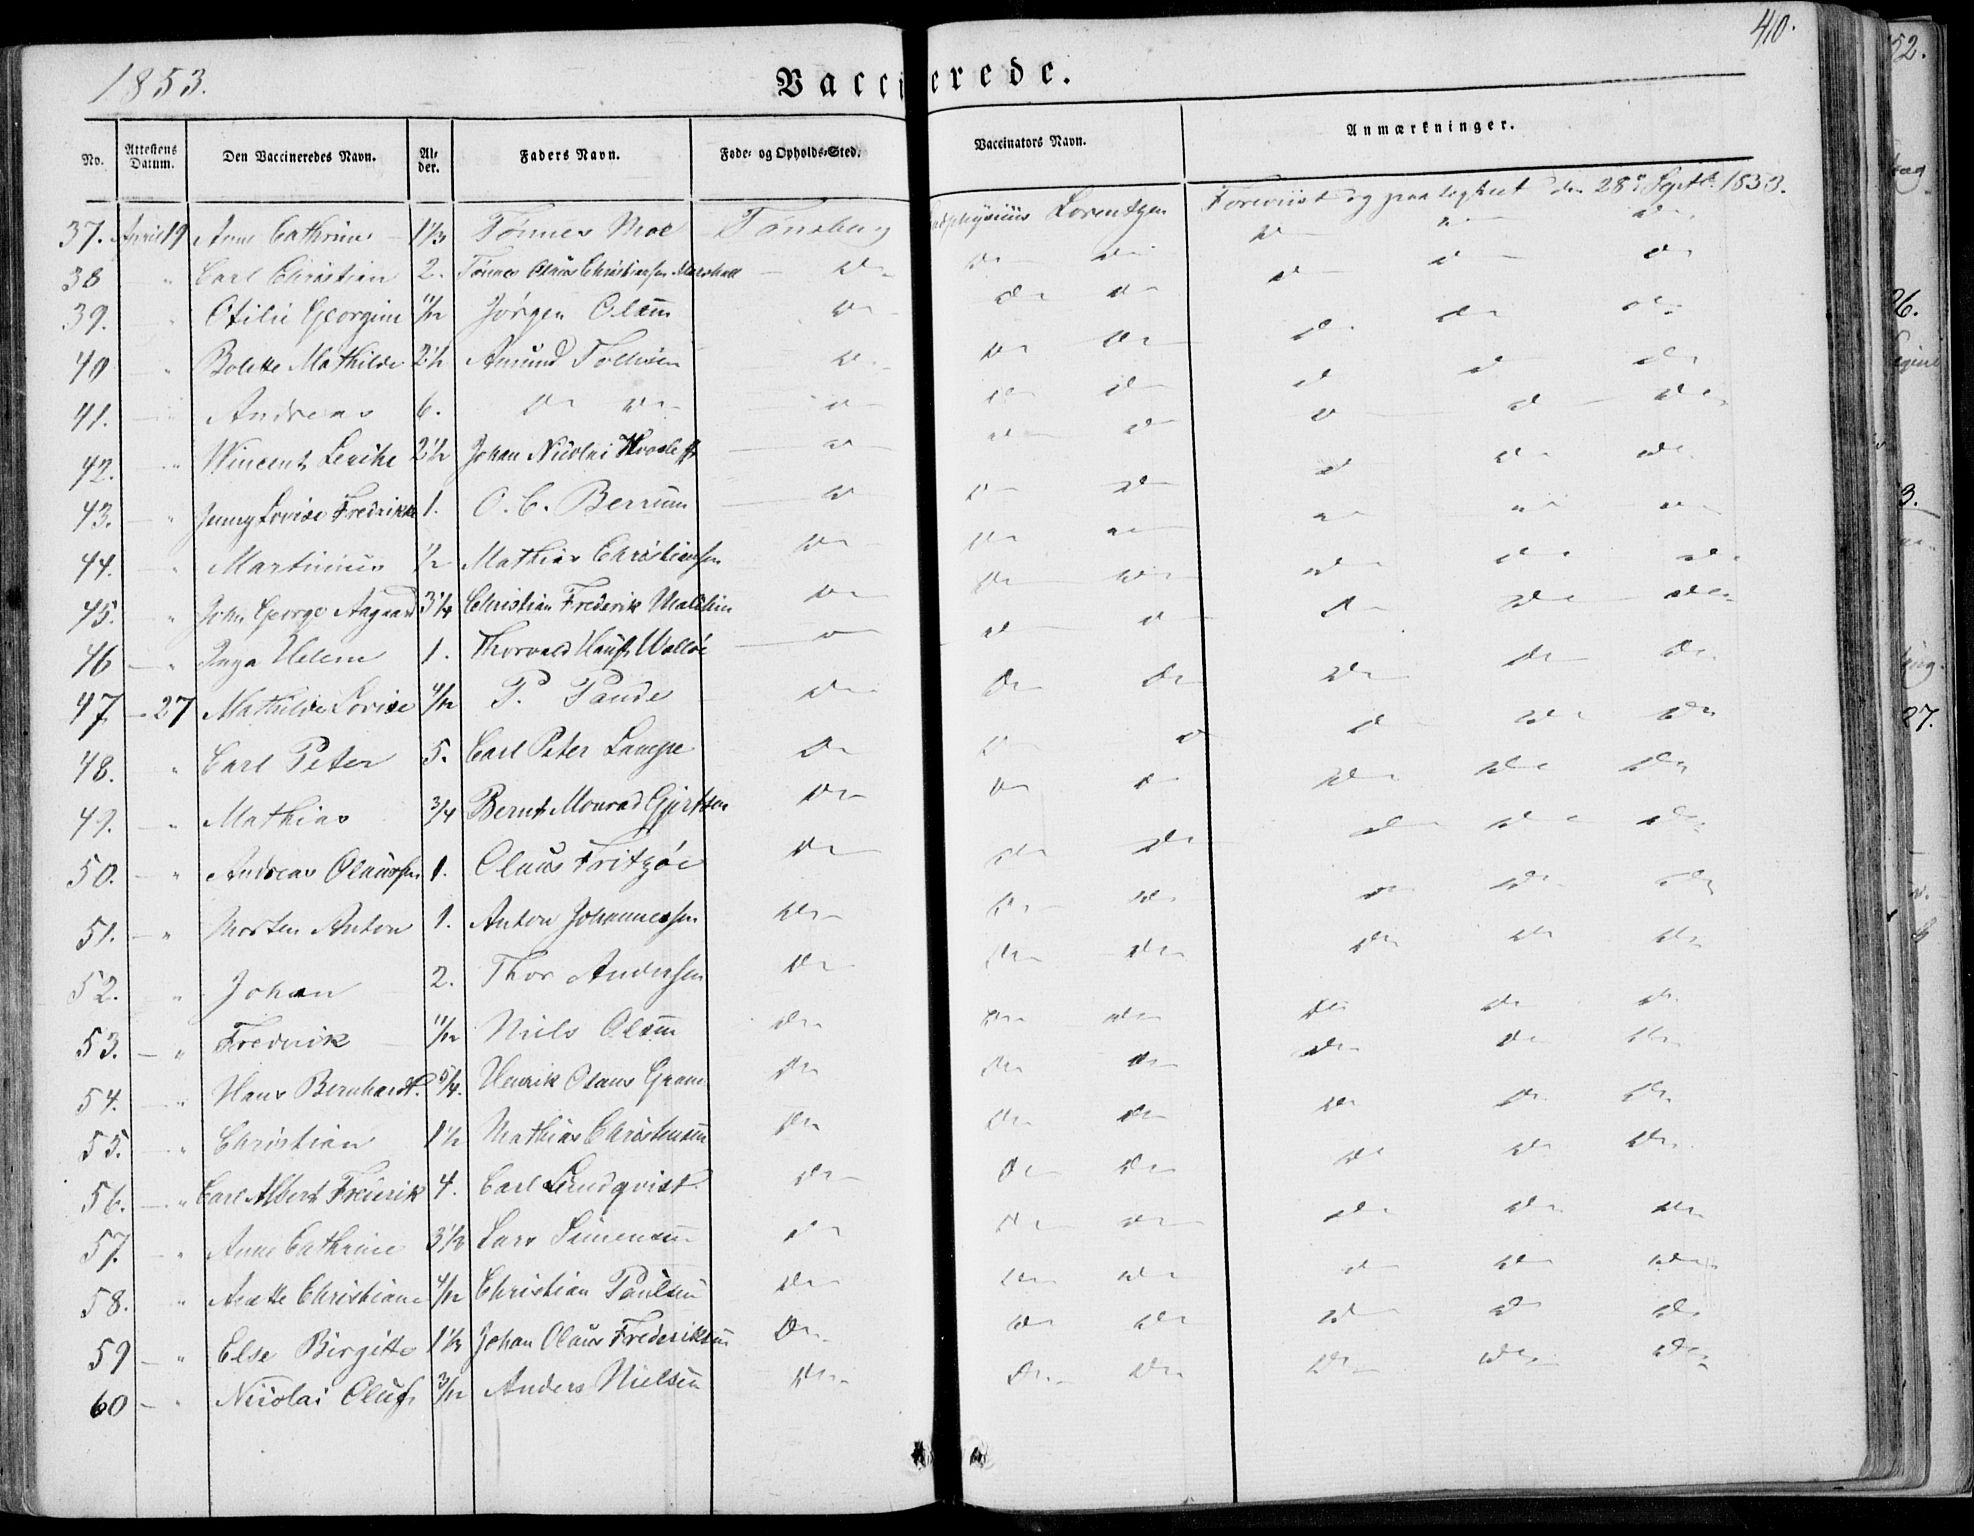 1853.
Vaccinerede.
410.
No. Attestens Datum. Den Vaccineredes Navn. Alder. Faders Navn. Føde- og Opholds-Sted. Vaccinators Navn. Anmærkninger.
37. April 19 Anne Cathrine 1 1/3 Tønnes Moe Tønsberg Lorentzen Foreviist og paategnet den 28de Septbr. 1853.
38 " Carl Christian 2. Tønnes Olaus Christiansen Marshall do do do do do do
39. " Otilie Georgine 11/12 Jørgen Olsen do do do do do do
40 " Bolette Mathilde 2 1/2 Amund Tollevsen do do do do do do
41. " Andreas 6. do do do do do do do do
42. " Wincent Lerche 2 1/2 Johan Nicolai do do do do do do
43. " Jenny Lovise Fredrikke 1. O. C. Berrum do do do do do do
44. " Martinius 1/2 Mathias Christiansen do do do do do do
45. " John George Aagaard 3 1/4 Christian Frederik do do do do do do
46 " Inga Helene 1. Thorvald Walløe do do do do do do
47 - 27 Mathilde Lovise 4/12 P. Paude do do do do do do
48. " Carl Peter 5. Carl Peter Lampe do do do do do do
49. " Mathias 3/4 Bernt Monrad Gjertsen do do do do do do
50. " Andreas Olaussen 1. Olaus Fritzøe do do do do do do
51. " Morten Anton 1. Anton Johannessen do do do do do do
52. " Johan 2. Thor Andersen do do do do do do
53. " Fredrik 11/12 Niels Olsen do do do do do do
54. " Hans Bernhardt. 5/4. Henrik Olaus Gram do do do do do do
55. " Christian 1 1/2 Mathias Christensen do do do do do do
56. " Carl Albert Frederik 4. Carl Lindqvist. do do do do do do
57. " Anne Cathrine 3 1/2 Lars Simensen do do do do do do
58. " Anette Christiane 4/12 Christian Paulsen do do do do do do
59 " Else Birgitte 1 1/2 Johan Olaus Frederiksen do do do do do do
60 " Nicolai Oluf 3/12 Anders Nielsen do do do do do do
52.
26.
3.
27.